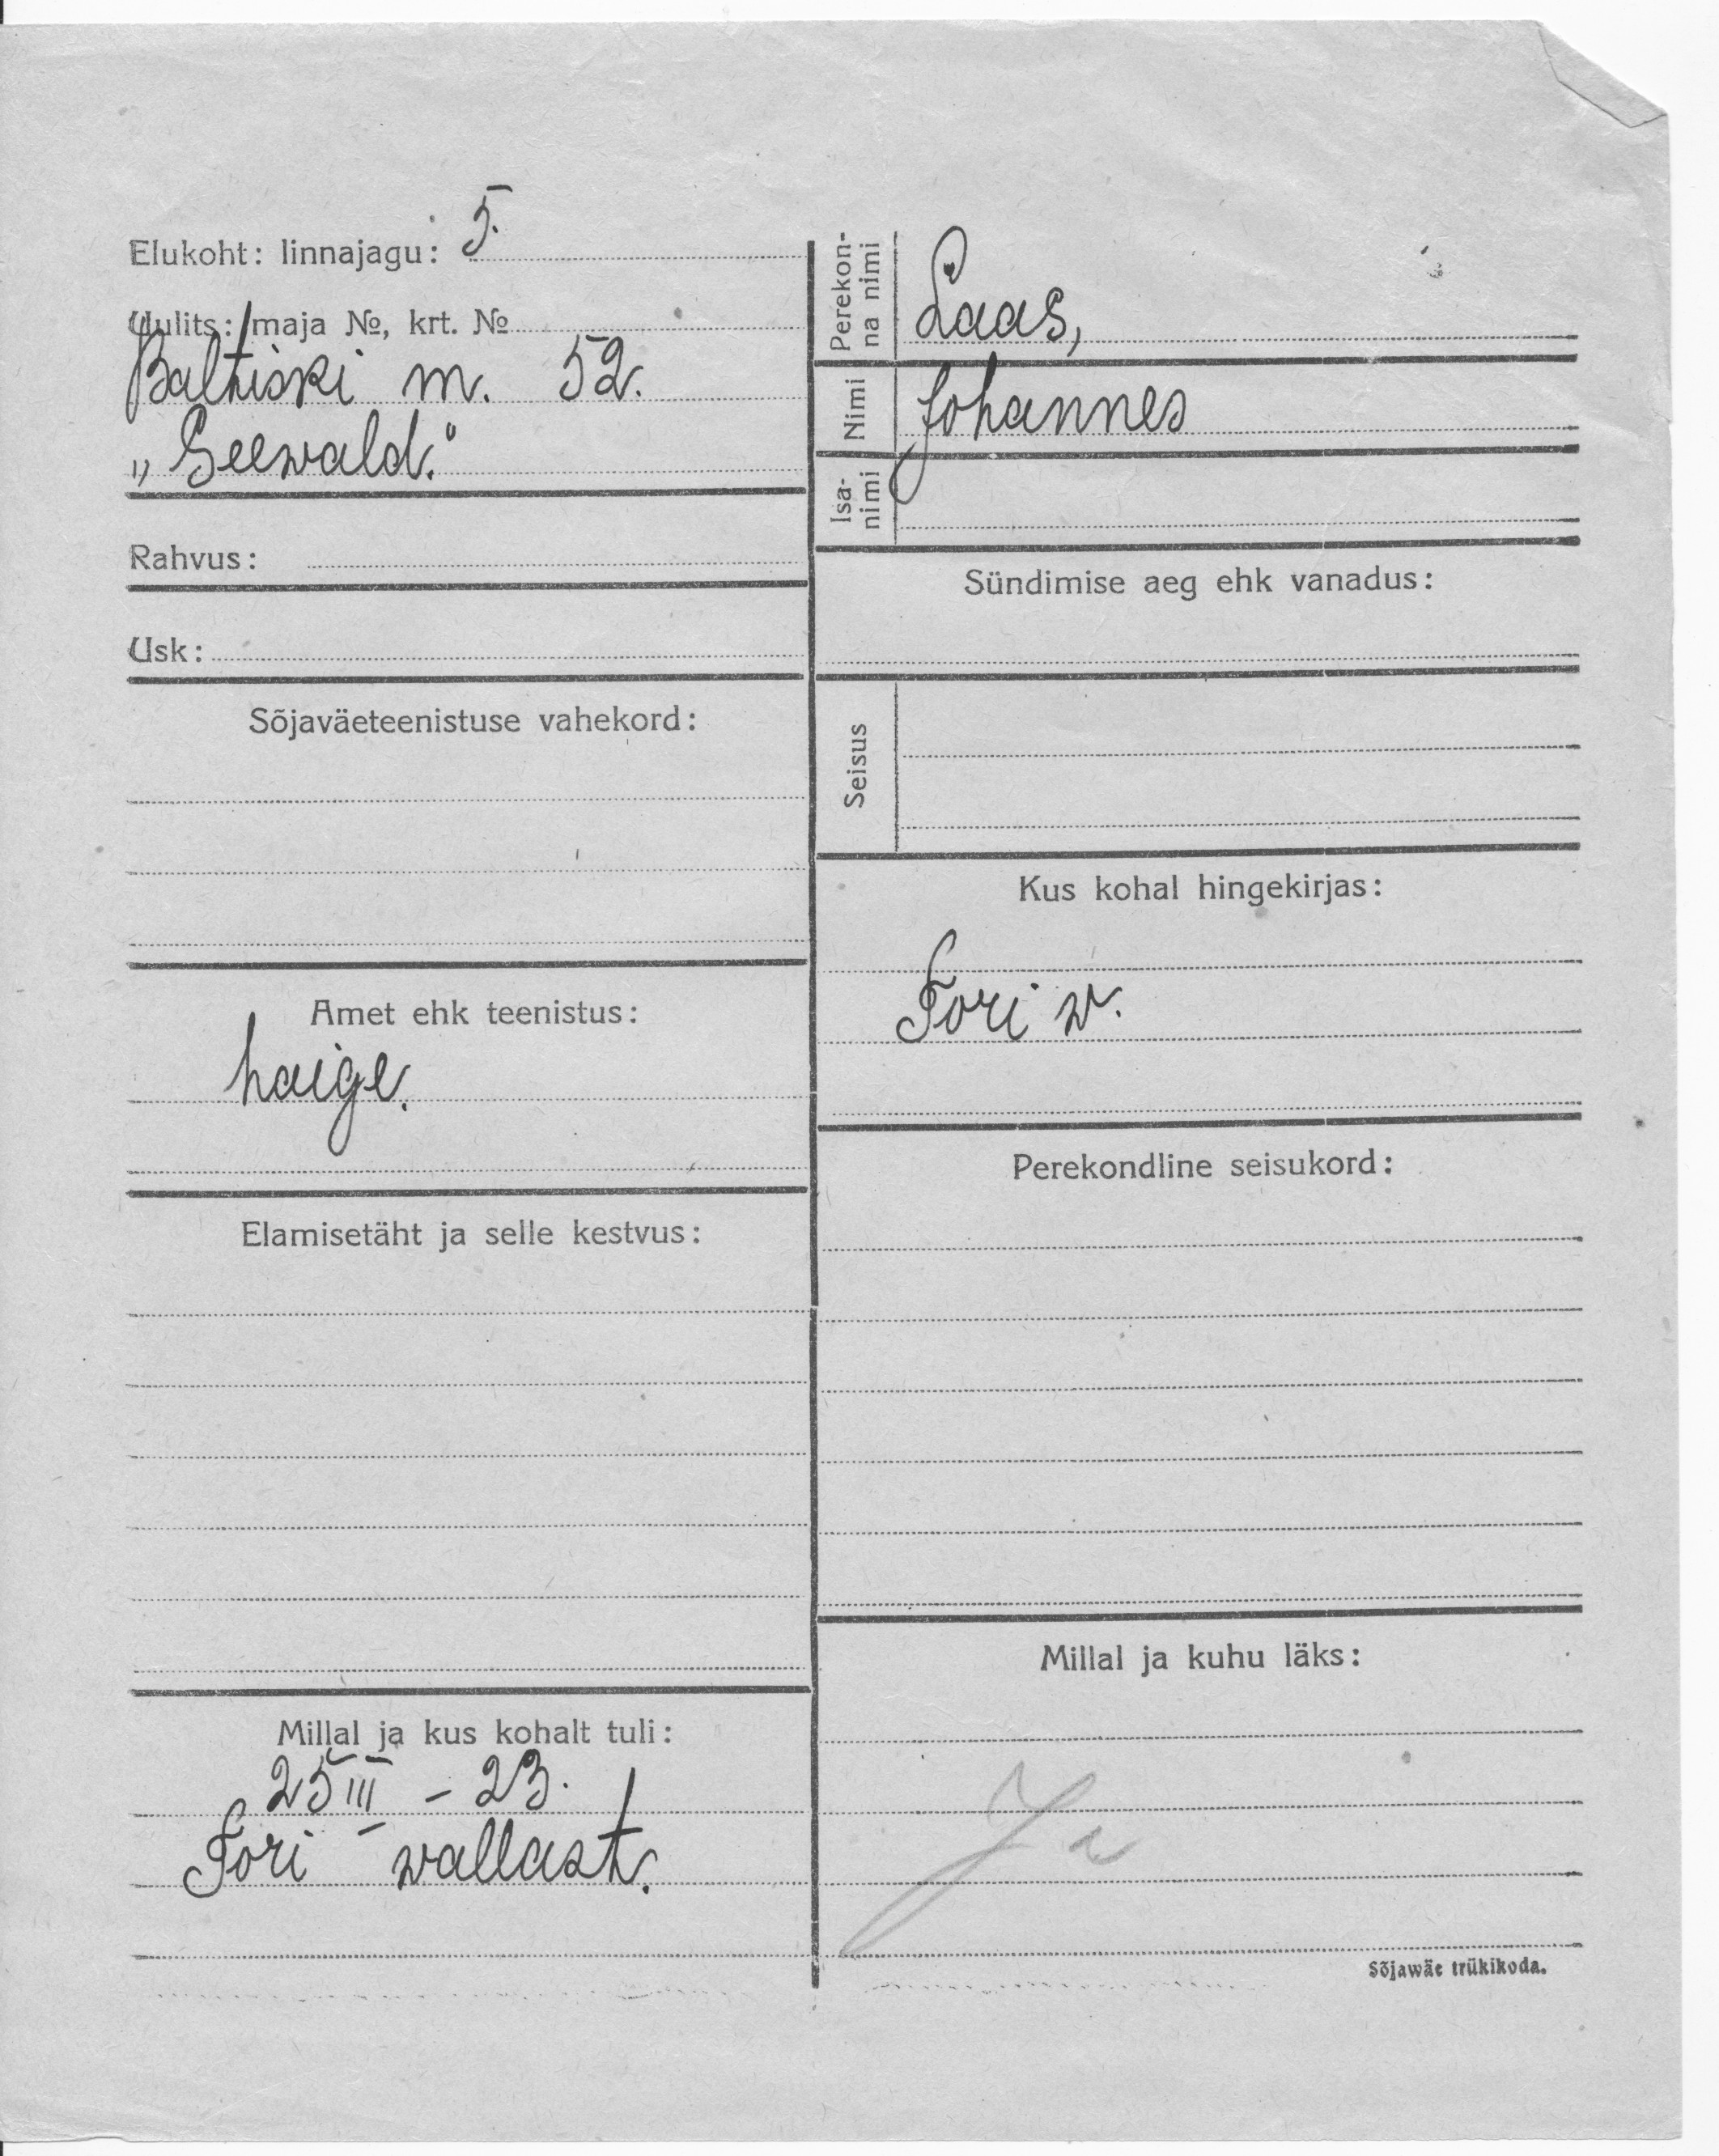 Elukoht: linnajagu: 5.
Uulits: maja №, krt. №
Baltiski m. 52.
„Seewald."
Rahvus:
Usk:
Sõjaväeteenistuse vahekord:
Amet ehk teenistus:
haige.
Elamisetäht ja selle kestvus:
Millal ja kus kohalt tuli:
25 III – 23.
Tori wallast.
Perekon-
na nimi
Laas,
Nimi
Johannes
Isa-
nimi
Sündimise aeg ehk vanadus:
Seisus
Kus kohal hingekirjas:
Tori w.
Perekondline seisukord:
Millal ja kuhu läks:
Sõjawäe trükikoda.